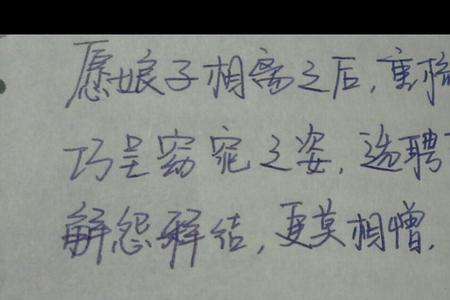 愿娘子相离之后，重梳
巧呈窈窕之姿，选聘
解怨释结，更莫相憎.